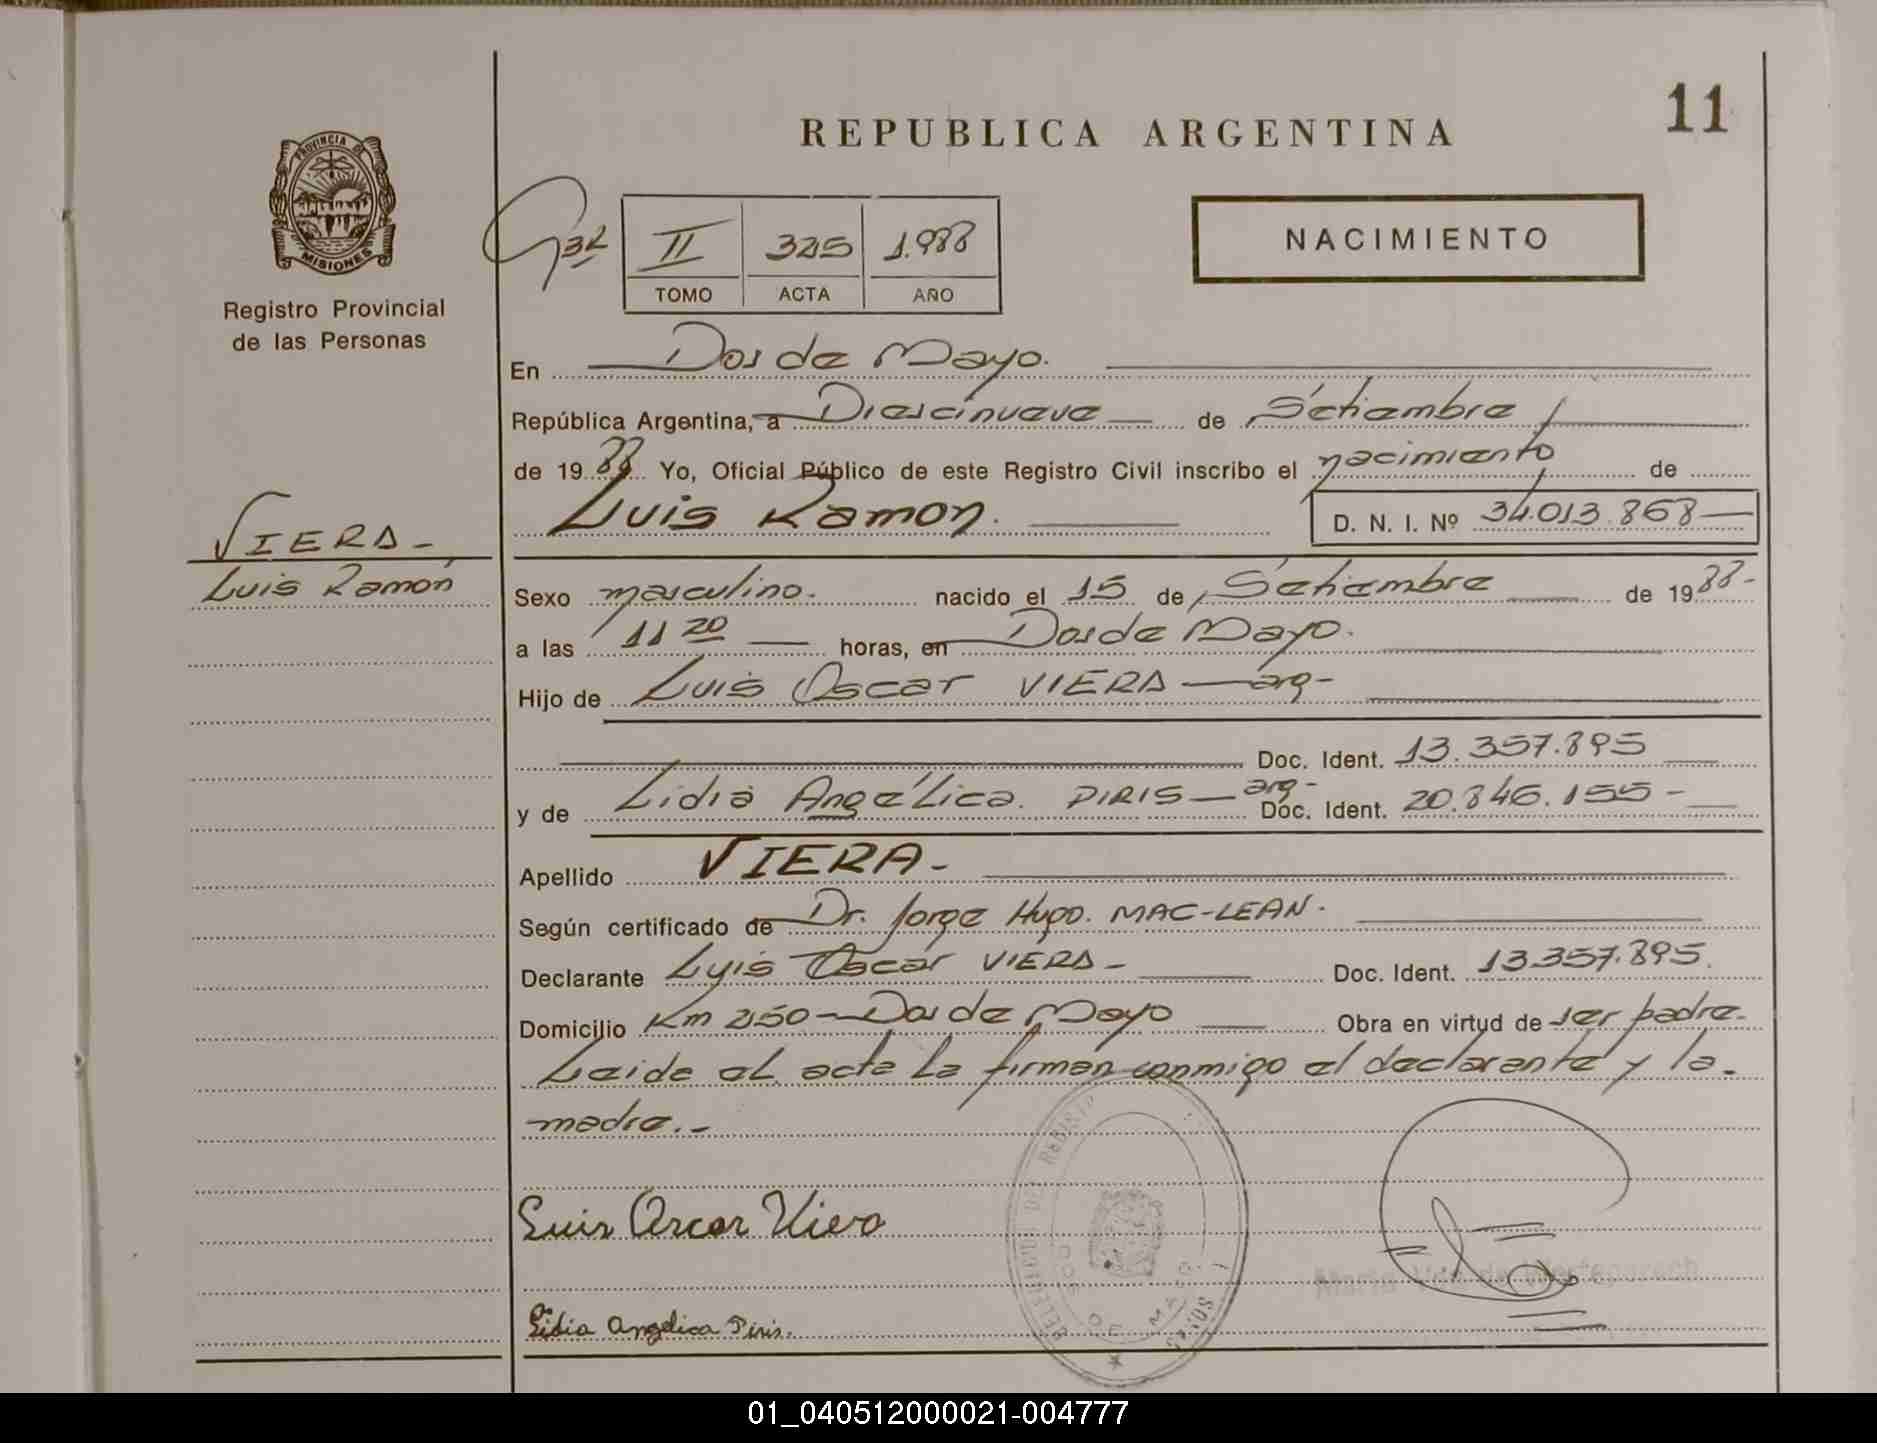 REPUBLICA ARGENTINA
11
PROVINCIA DE
MISIONES
Registro Provincial
de las Personas
II 325 1.988
TOMO ACTA AÑO
NACIMIENTO
En Dos de Mayo.
República Argentina, a Diescinueve de Setiembre
de 1988. Yo, Oficial Público de este Registro Civil inscribo el nacimiento de
Luis Ramon. D. N. I. Nº 34.013.868
VIERA-
Luis Ramón
Sexo masculino. nacido el 15 de Setiembre de 1988-
a las 11 20 horas, en Dos de Mayo.
Hijo de Luis Oscar VIERA - arg-
Doc. Ident. 13.357.895
y de Lidia Angélica. PIRIS - arg- Doc. Ident. 20.846.155-
Apellido VIERA-
Según certificado de Dr. Jorge Hugo. MAC-LEAN.
Declarante Luis Oscar VIERA- Doc. Ident. 13.357.895.
Domicilio Km 250-Dos de Mayo Obra en virtud de ser padre-
Leide el acta la firman conmigo el declarante y la-
madre.-
Luis Oscar Viera
Lidia Angelica Piris.
DOS DE MAYO
01_040512000021-004777